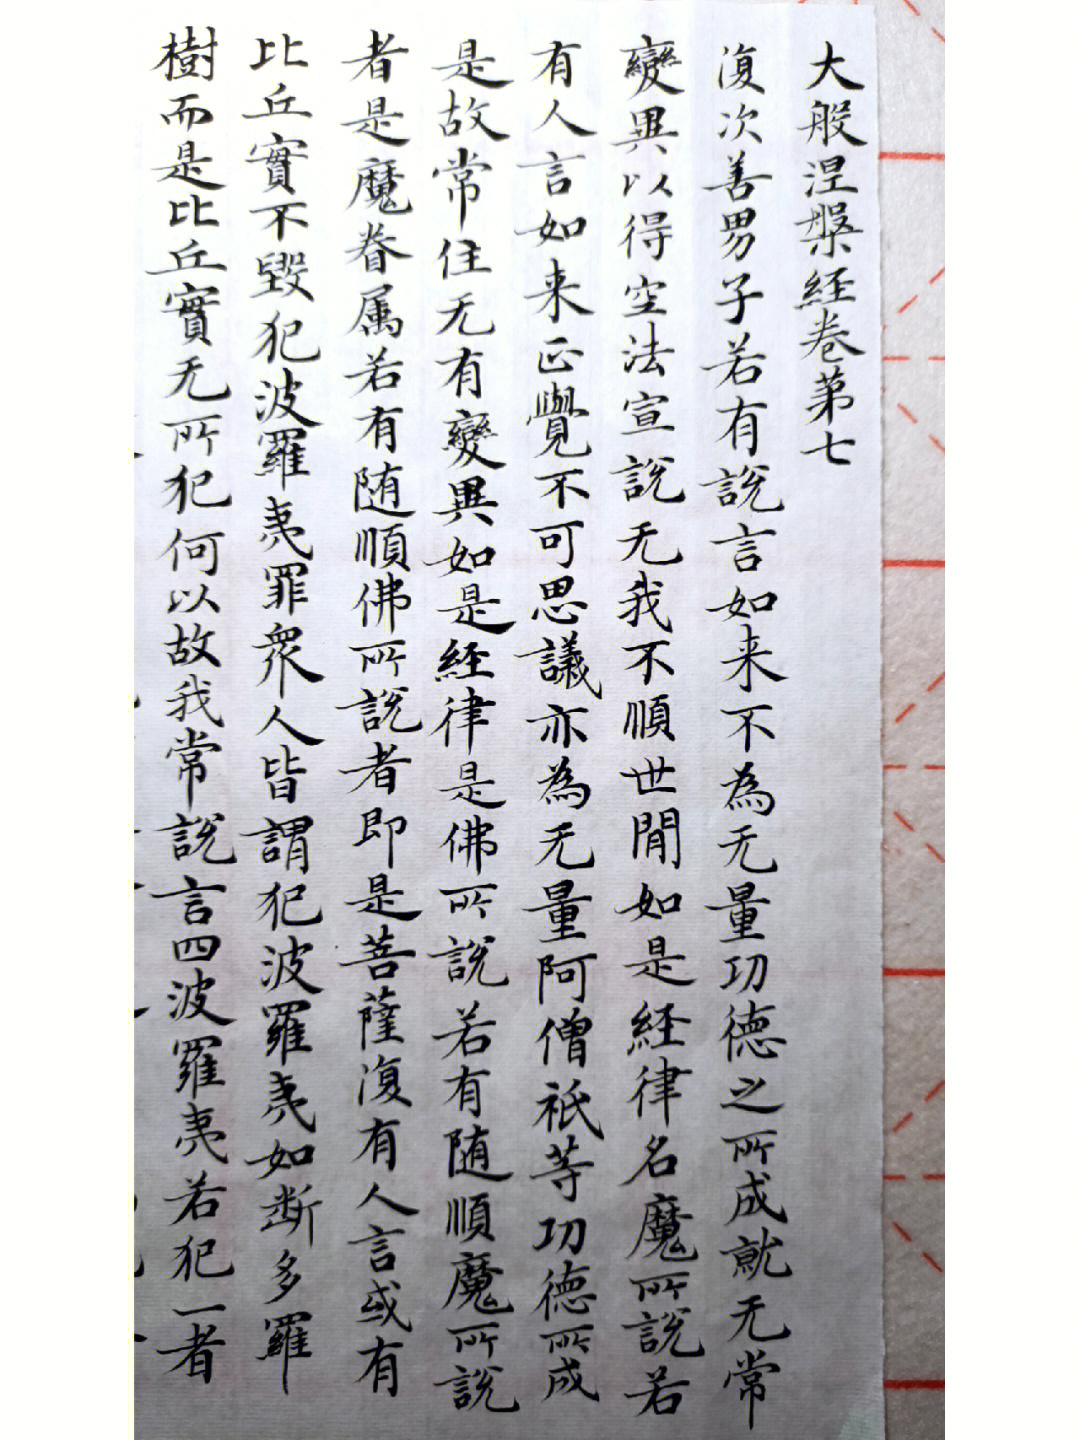 大般涅槃経卷第七
復次善男子若有說言如来不為无量功德之所成就无常
變異以得空法宣說无我不順世間如是経律名魔所說若
有人言如来正覺不可思議亦為无量阿僧祇等功德所成
是故常住无有變異如是経律是佛所說若有随順魔所說
者是魔眷属若有随順佛所說者即是菩薩復有人言或有
比丘實不毀犯波羅夷罪衆人皆謂犯波羅夷如断多羅
樹而是比丘實无所犯何以故我常說言四波羅夷若犯一者